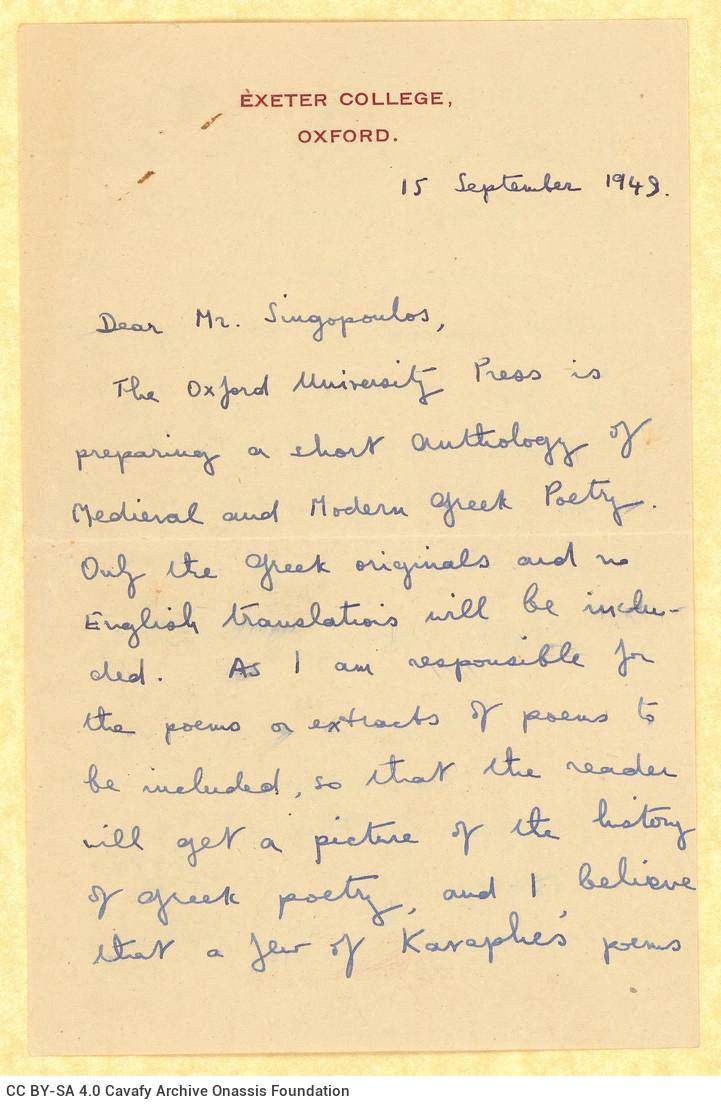 EXETER COLLEGE,
OXFORD.
15 September 1949.
Dear Mr. Singopoulos,
The Oxford University Press is
preparing a short anthology of
Medieval and Modern Greek Poetry.
Only the Greek originals and no
English translations will be inclu-
ded. As I am responsible for
the poems or extracts of poems to
be included, so that the reader
will get a picture of the history
of Greek poetry, and I believe
that a few of Kavaphes' poems
CC BY-SA 4.0 Cavafy Archive Onassis Foundation